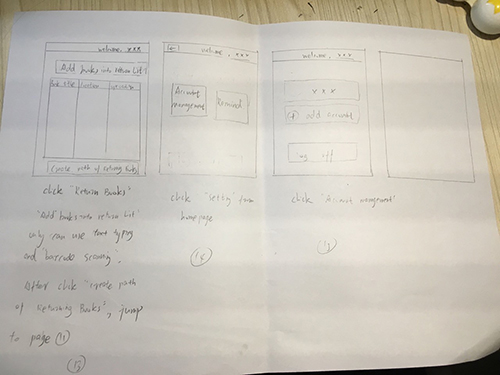 welcome, xxx
Add books into return list
Book title location
Create path of returning books
click "Return Books"
"Add books into return list"
only can use text typing
and "barcode scanning".
After click "create path
of Returning Books", jump
to page 11
welcome, xxx
Account
management
click "setting" from
homepage
14
welcome, xxx
x x x
+ add account
log off
click "Account management"